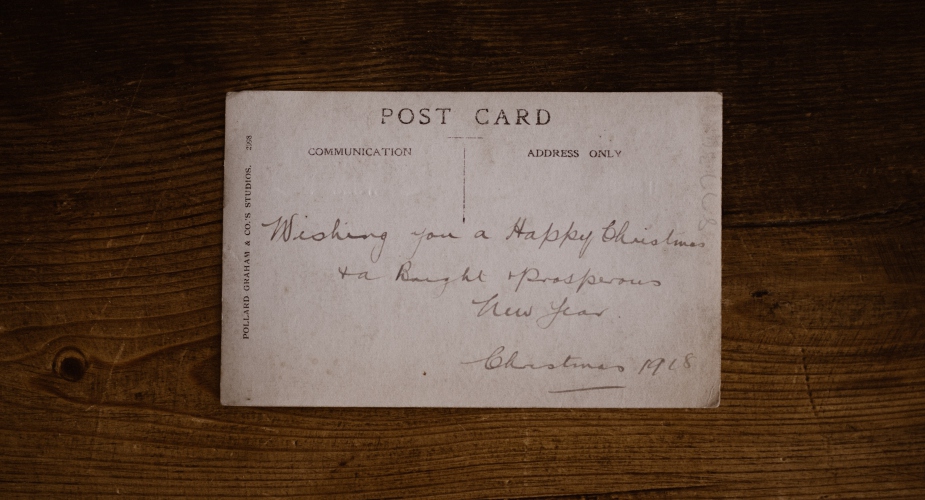 POST CARD
COMMUNICATION
ADDRESS ONLY
Wishing you a Happy Christmas
+ a Bright + Prosperous
New Year.
Christmas 1918
POLLARD GRAHAM & CO.'S STUDIOS.